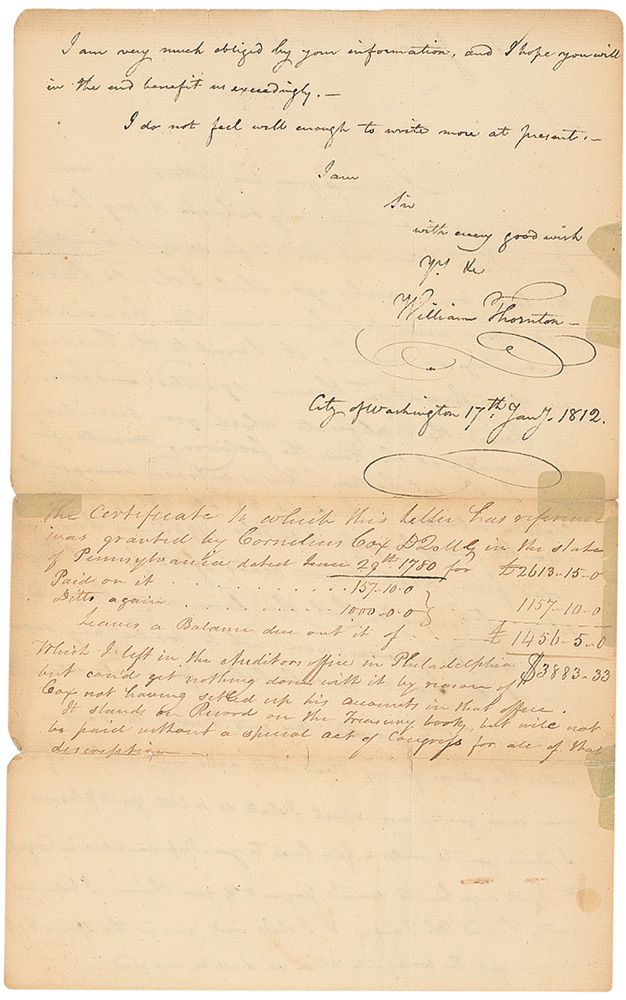 I am very much obliged by your information, and I hope you will
in the end benefit us exceedingly.—
I do not feel well enough to write more at present.—
I am
Sir
with every good wish
Yrs &c
William Thornton—
City of Washington 17th Jany. 1812.
The Certificate to which this letter has reference
was granted by Cornelius Cox DQMG in the state
of Pennsylvania dated June 29th 1780 for £2613-15-0
Paid on it . . . . . . . . . . 157-10-0
Ditto again . . . . . . . . . 1000-0-0 } 1157-10-0
Leaves a Balance due out it of . . . £1456-5-0
Which I left in the Auditors office in Philadelphia $3883-33
but could get nothing done with it by reason of
Cox not having setled up his accounts in that office.
It stands on Record on the Treasury books, but will not
be paid without a special act of Congress for all of that
description